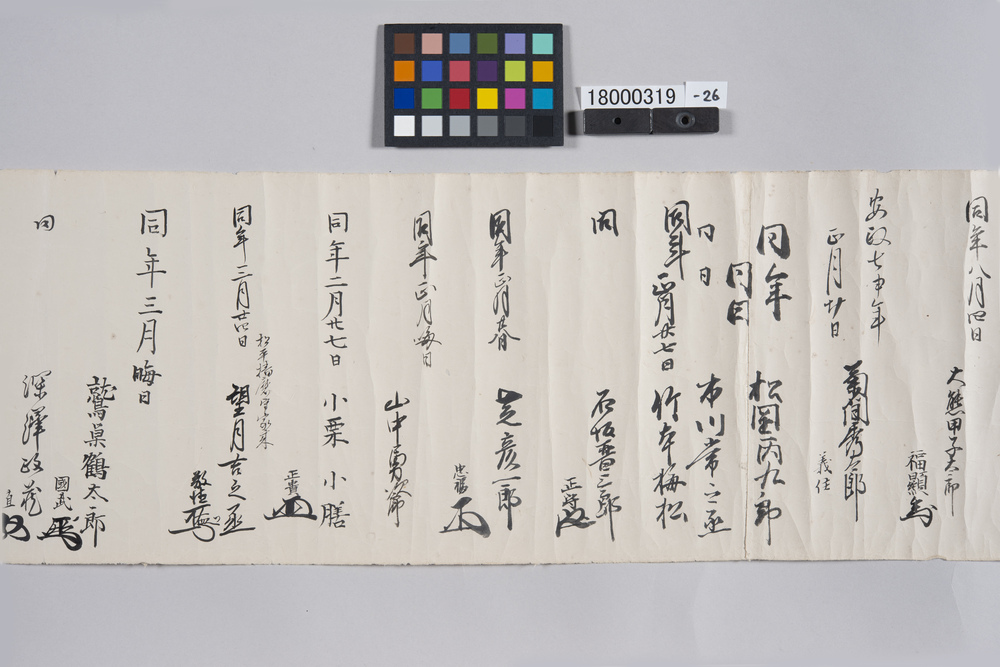 18000319
-26
同年八月四日
大熊甲子太郎
福顯
安政七申年
正月廿日
菊間秀太郎
義住
同年
松岡丙九郎
同日
同日
市川常之丞
同年正月廿七日
竹本梅松
同
石坂晋三郎
正守
同年正月
芝彦一郎
忠福
同年正月晦日
山中勇次郎
同年二月廿七日
小栗小膳
正貴
松平播磨守家来
同年三月廿四日
望月吉之丞
敬恒
同年三月晦日
鷲巣鶴太郎
國武
同
深澤政蔵